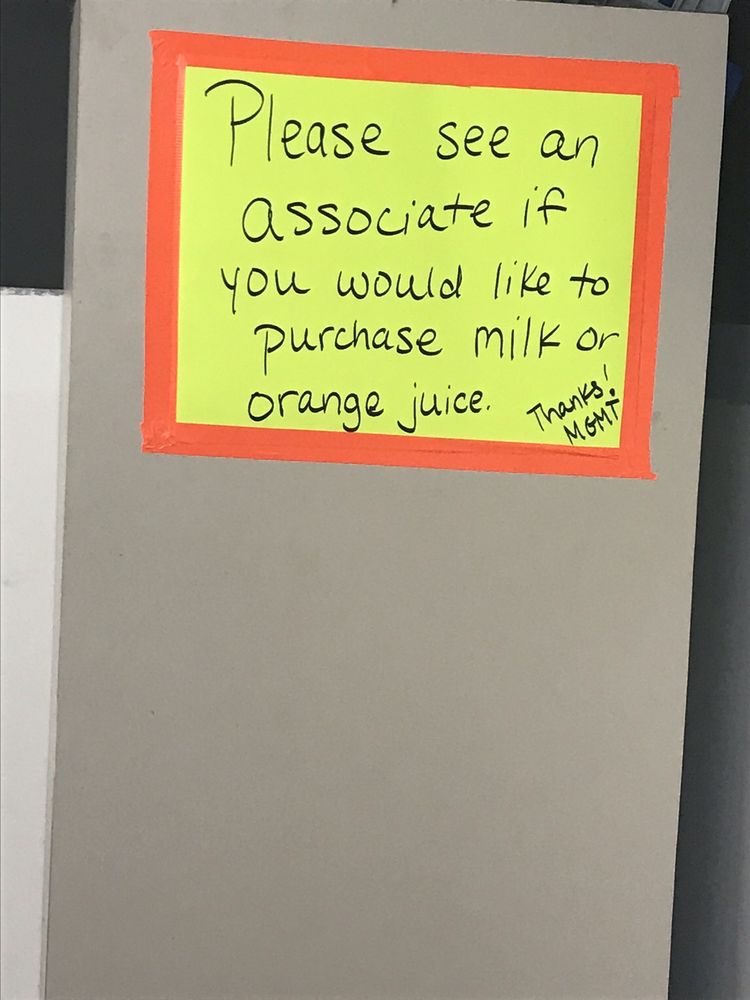 Please see an
associate if
you would like to
purchase milk or
orange juice.
Thanks!
MGMT